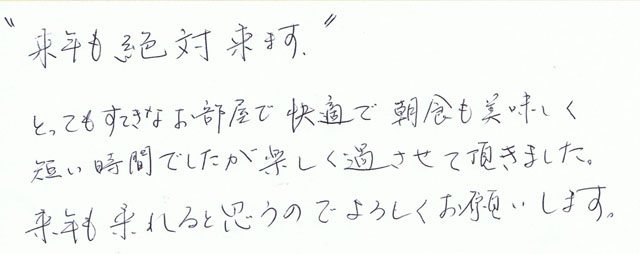 "来年も絶対来ます."
とってもすてきなお部屋で快適で朝食も美味しく
短い時間でしたが楽しく過させて頂きました。
来年も来れると思うのでよろしくお願いします。